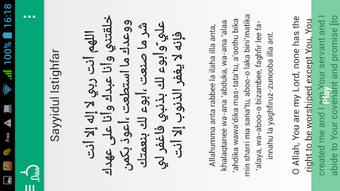 16:18
100%
Free
Sayyidul Istighfar
اللهم أنت ربي لا إله إلا أنت
خلقتني وأنا عبدك وأنا على عهدك
ووعدك ما استطعت ،أعوذ بك من
شر ما صنعت ،أبوء لك بنعمتك
علي وأبوء لك بذنبي فاغفر لي
فإنه لا يغفر الذنوب إلا أنت
Allahumma anta rabbee la ilaha illa anta,
khalaqtanee wa-ana 'abduka, wa-ana 'alaa
'ahdika wawa'dika mas-tata'tu, a'oothu bika
min sharri ma sana'tu, aboo-o laka bini'matika
'alaya, wa-aboo-o bizambee, faghfir lee fa-
innahu la yaghfiruz-zunooba illa ant.
O Allah, You are my Lord, none has the
right to be worshiped except You, You
created me and I am Your servant and I
abide to Your covenant and promise [to
Play